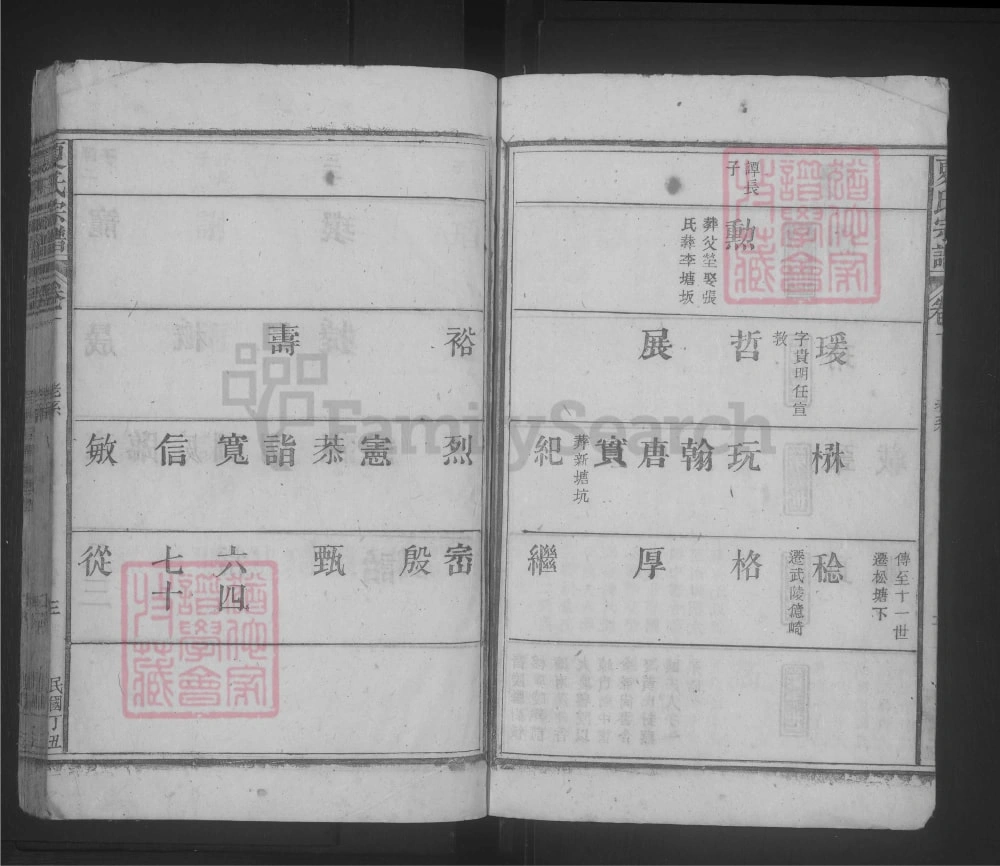 夏氏宗譜
譚長
子
勳
葬父塋娶張
氏葬李塘坂
瑗
字貴明任宣
教
哲
展
楙
玩
翰
唐
實
葬新塘坑
紀
傳至十一世
遷松塘下
稔
遷武陵億崎
格
厚
繼
裕
壽
烈
憲
恭
詣
寬
信
敏
殷
甄
六四
七十
從
夏氏宗譜
老系
三
民國丁丑
FamilySearch